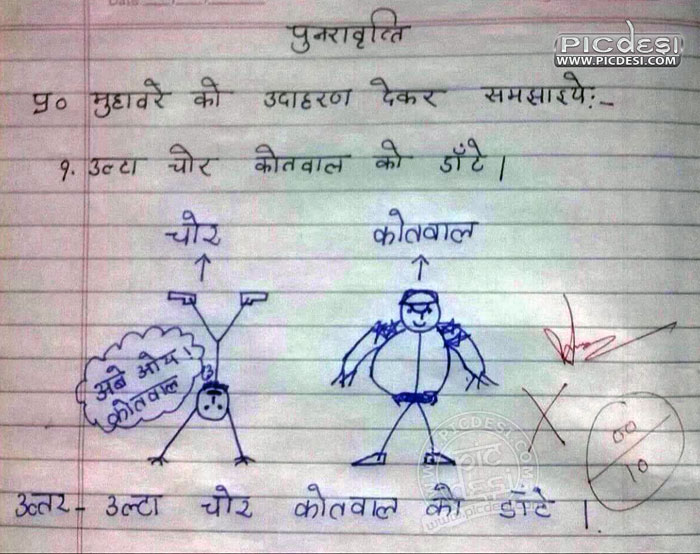 पुनरावृत्ति
PICDESI
WWW.PICDESI.COM
प्र० मुहावरे को उदाहरण देकर समझाइये:-
१. उल्टा चोर कोतवाल को डाँटे।
चोर
कोतवाल
अबे ओय!
कोतवाल
00
10
PICDESI.COM
www.picdesi.com
उत्तर- उल्टा चोर कोतवाल को डाँटे।